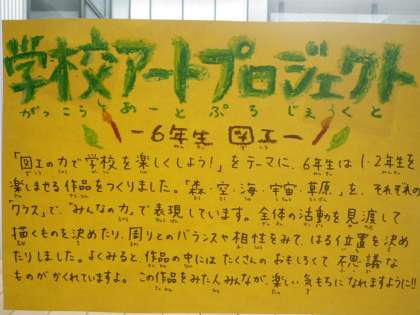 学校アートプロジェクト
がっこう あーと ぷろ じぇくと
-6年生 図工-
「図工の力で学校を楽しくしよう!」をテーマに、6年生は1・2年生を
楽しませる作品をつくりました。「森・空・海・宇宙・草原」を、それぞれの
「クラス」で、"みんなの力"で表現しています。全体の活動を見渡して
描くものを決めたり、周りとのバランスや相性をみて、はる位置を決め
たりしました。よくみると、作品の中にはたくさんのおもしろくて不思議な
ものがかくれていますよ。この作品をみたみんなが、楽しい気もちになれますように!!